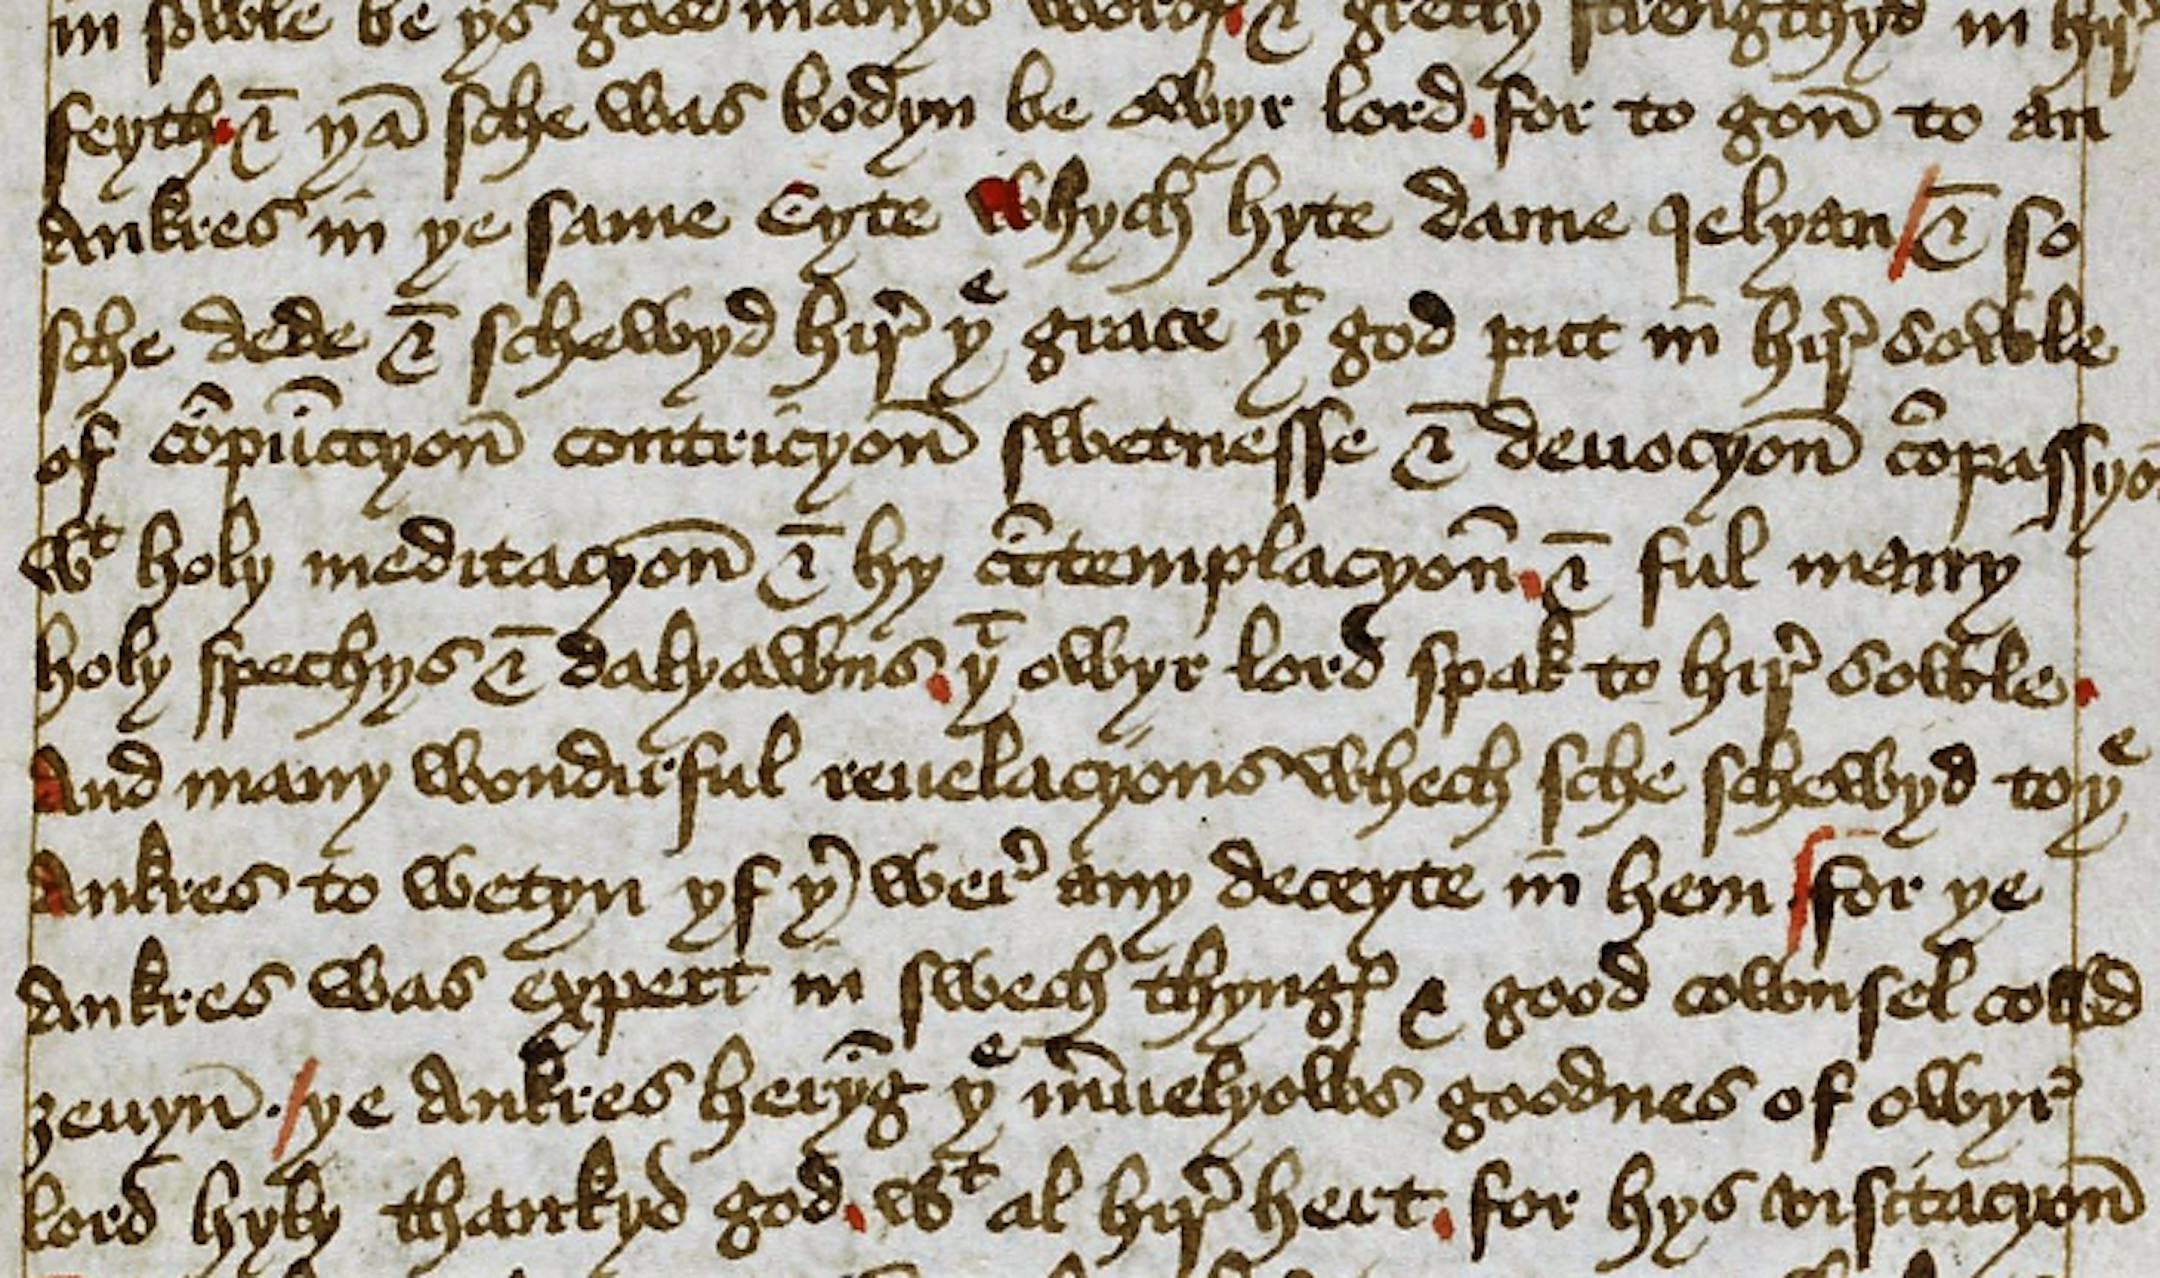 in sowle be ys good mannys wordꝭ. & gretly strengthyd in hyr̛
feyth. & yā sche was bodyn be owyr lord. for to gon̄ to an
Ankres in ye same Cyte whych hyte dame Jelyan / & so
sche dede & schewyd hir̛ yᵉ grace yᵗ god putt in hir̛ sowle
of cōpūctyon̄ contricyon̄ swetnesse & deuocyon̄ cōpassyō
wᵗ holy meditacyon̄ & hy cōtemplacyon̄. & ful many
holy spechys & dalyawns. yᵗ owyr lord spak to hir̛ sowle.
And many wondirful reuelacyons whech sche schewyd to yᵉ
Ankres to wetyn yf yr̛ wer̛ any deceyte in hem / for ye
Ankres was expert in swech thyngꝭ & good cownsel cowd
ȝeuyn̄. / ye Ankres heryn̄g yᵉ m̛uelyows goodnes of owyr̛
lord hyly thankyd god. wᵗ al hir̛ hert. for hys visitacyon̄